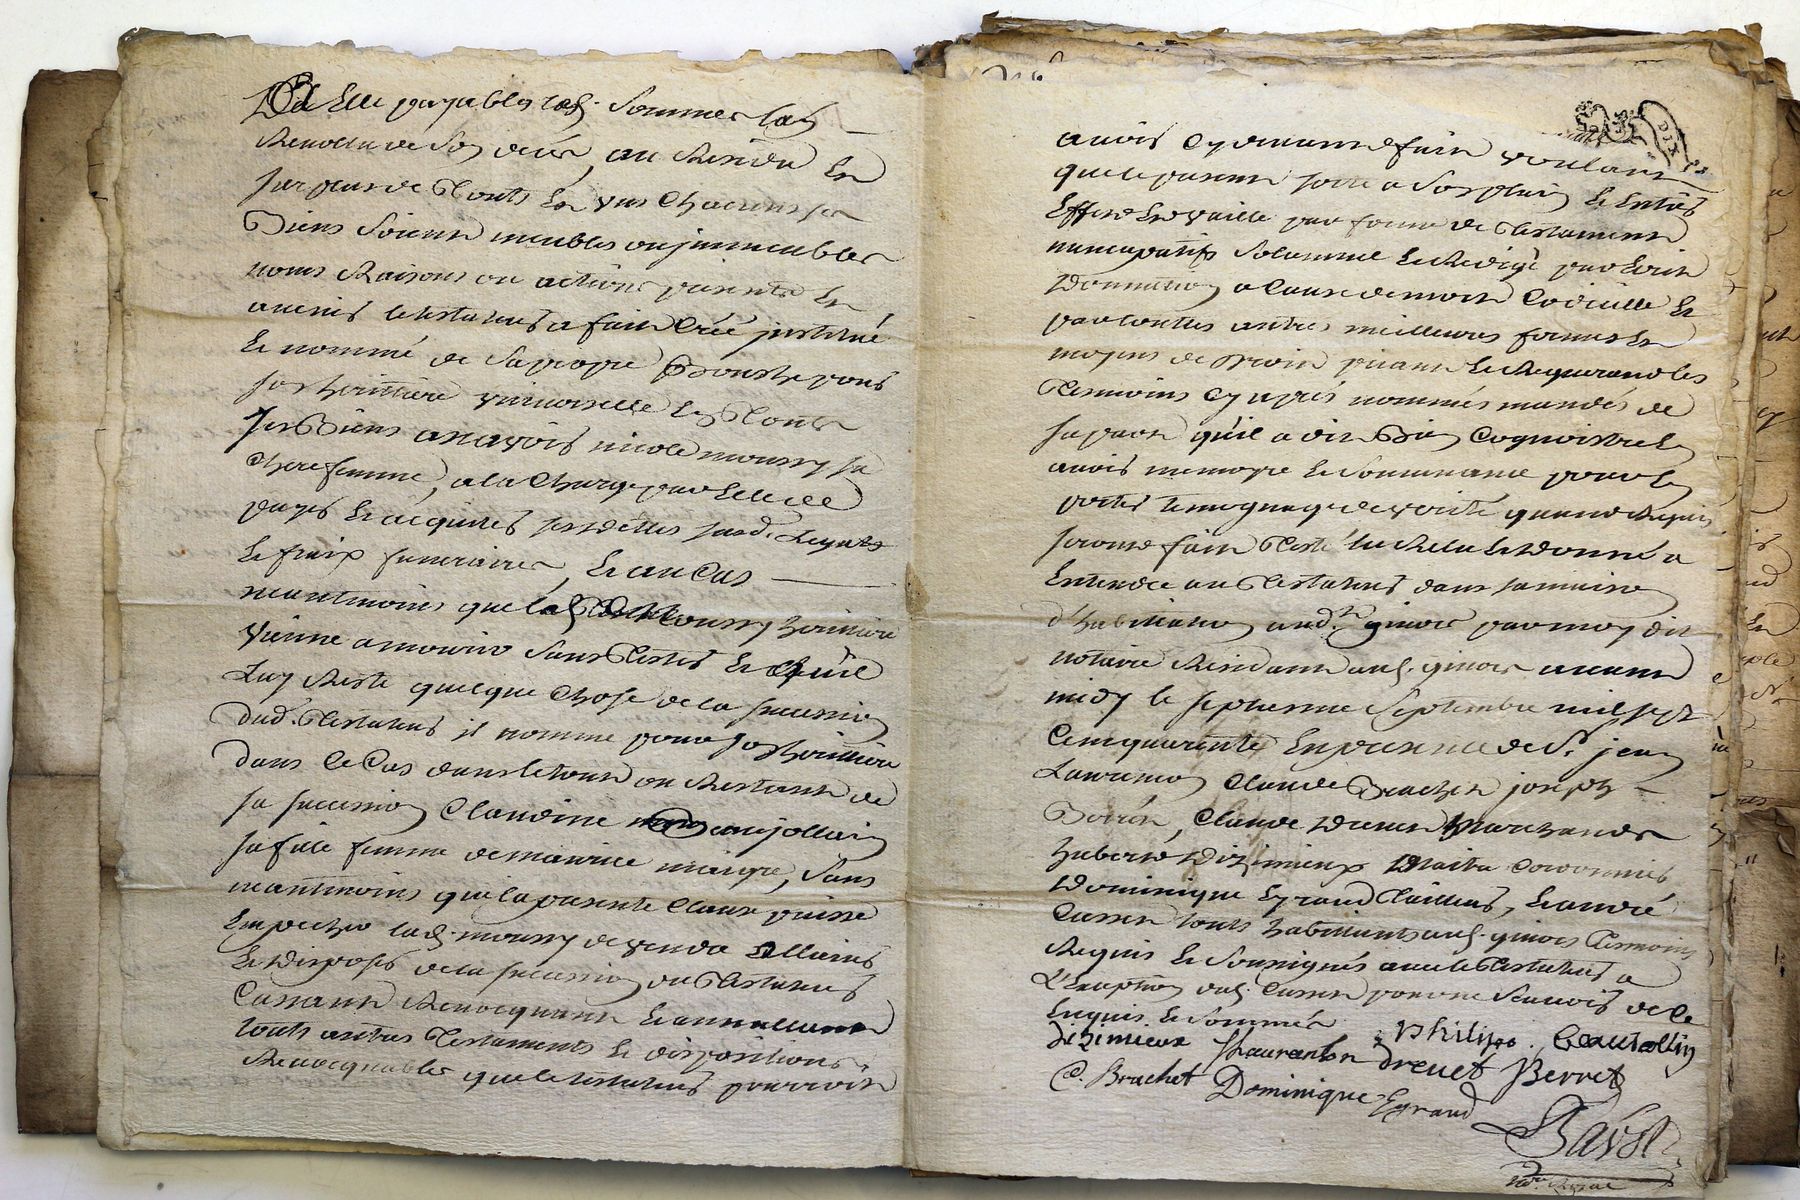 De Elle payables lesd. sommes lad.
Revolution de Son decès, au Residu Et
surplus de Touts Et uns Chacuns ses
Biens Soient meubles ou immeubles
noms Raisons ou actions presents Et
avenir le testateur a fait Créé institué
Et nommé de sa propre Bouche pour
son heritiere universelle En Touts
ses Biens asçavoir nicole moussy sa
Chere femme, a la Charge par Elle de
payer Et acquiter ses dettes susd. Legats
Et fraix funeraires, Et au Cas
neantmoins que lad. moussy heritiere
Vienne a mourir Sans Tester Et qu'il
Luy Reste quelque Chose de la succession
dud. Testateur il nomme pour son heritiere
dans Ce Cas dans le tout ou Restant de
sa succession Claudine Caujollin
sa fille femme de maurice maigre, Sans
neantmoins que la presente Clause puisse
Empecher lad. moussy de vendre alliener
Et disposer de la succession du Testateur
Cassant Revocquant Et annullant
touts autres Testaments Et dispositions
Revocquables que le testateur pourroit
DIX
avoir Cydevant fait voulant
que le present sorte a son plein Et Entier
Effet Et vaille par forme de Testament
nuncupatif Solamnel Et Redigé par Ecrit
Donnation a Cause de mort Codicille Et
par touttes autres meilleures formes Et
moyens de Droit priant Et Requerant les
Tesmoins Cy après nommés mandés de
sa part qu'il a dit Bien Cognoistre d'En
avoir memoire Et Souvenance pour En
porter temoignage de verité quand Requis
seront fait Testé lu Relu Et donné a
Entendre au Testateur dans sa maison
d'habitation aud. givors par moy dit
notaire Residant aud. givors avant
midy le septieme Septembre mil sept
Cent quarente En presence de Sr. jean
Laurenson Claude Brachet joseph
Berret, Claude Drevet Marchands
huberd Dizimieux Maitre Cordonnier
Dominique Eyraud Tailleur, Et andré
Cusset touts habittants aud. givors Tesmoins
Requis Et Soussignés avec le Testateur a
L'Exception dud. Cusset pour ne Scavoir de Ce
Enquis Et Sommés
dizimieux Jlauranson philipe. Caujollin
C. Brachet drevet JBerret
Dominique Eyraud